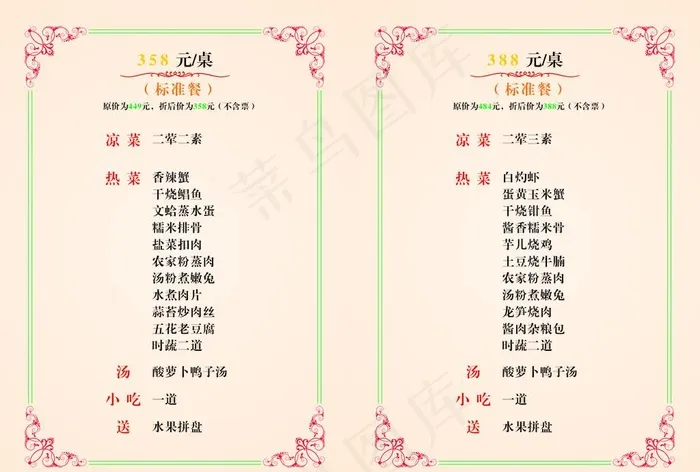 358 元/桌
（标准餐）
原价为449元，折后价为358元（不含票）
凉菜 二荤二素
热菜 香辣蟹
干烧鲳鱼
文蛤蒸水蛋
糯米排骨
盐菜扣肉
农家粉蒸肉
汤粉煮嫩兔
水煮肉片
蒜苔炒肉丝
五花老豆腐
时蔬二道
汤 酸萝卜鸭子汤
小吃 一道
送 水果拼盘
388 元/桌
（标准餐）
原价为484元，折后价为388元（不含票）
凉菜 二荤三素
热菜 白灼虾
蛋黄玉米蟹
干烧钳鱼
酱香糯米骨
芋儿烧鸡
土豆烧牛腩
农家粉蒸肉
汤粉煮嫩兔
龙笋烧肉
酱肉杂粮包
时蔬二道
汤 酸萝卜鸭子汤
小吃 一道
送 水果拼盘
菜鸟图库
菜鸟图库